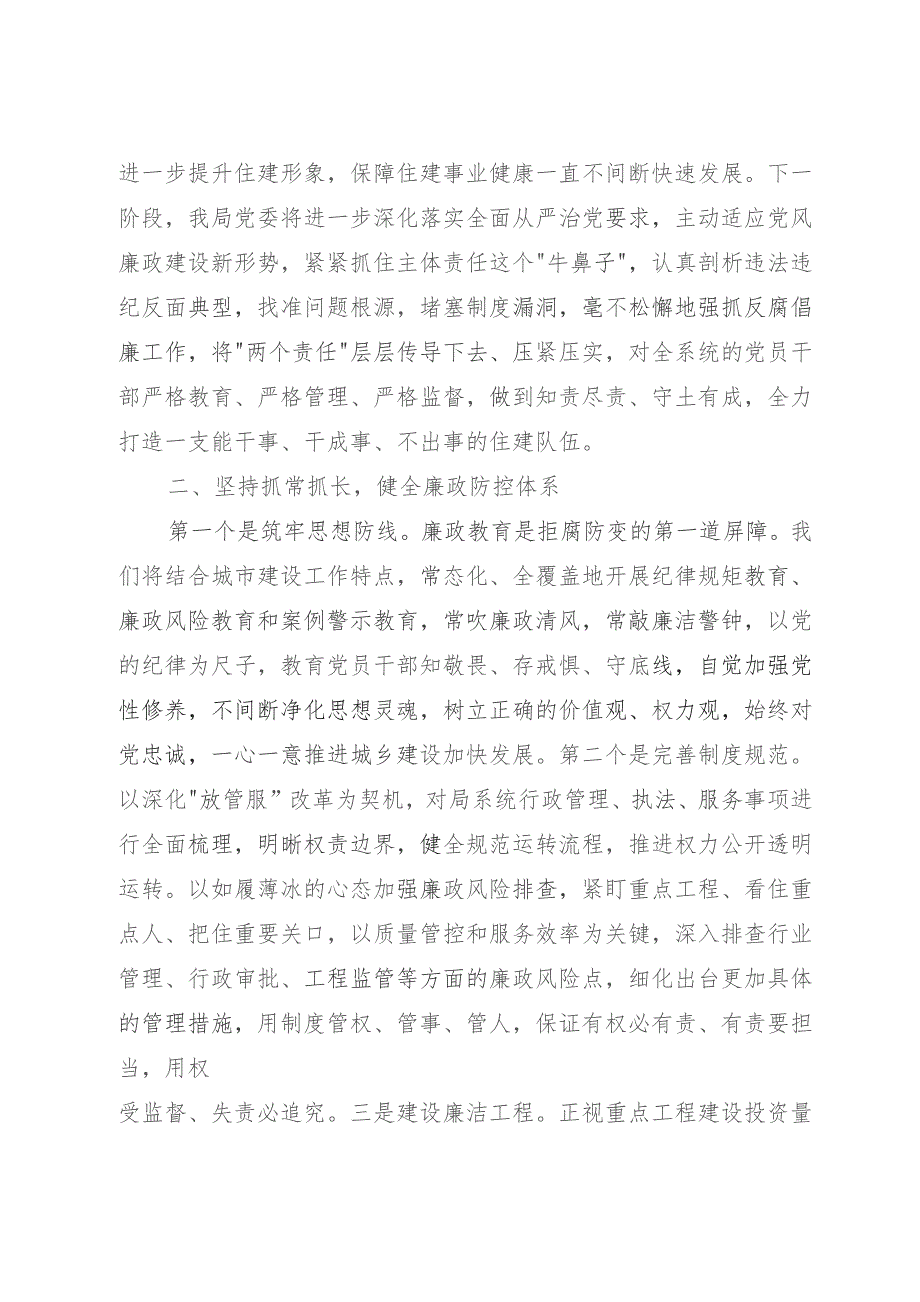 进一步提升住建形象，保障住建事业健康一直不间断快速发展。下一
阶段，我局党委将进一步深化落实全面从严治党要求，主动适应党风
廉政建设新形势，紧紧抓住主体责任这个"牛鼻子"，认真剖析违法违
纪反面典型，找准问题根源，堵塞制度漏洞，毫不松懈地强抓反腐倡
廉工作，将"两个责任"层层传导下去、压紧压实，对全系统的党员干
部严格教育、严格管理、严格监督，做到知责尽责、守土有成，全力
打造一支能干事、干成事、不出事的住建队伍。
二、坚持抓常抓长，健全廉政防控体系
第一个是筑牢思想防线。廉政教育是拒腐防变的第一道屏障。我
们将结合城市建设工作特点，常态化、全覆盖地开展纪律规矩教育、
廉政风险教育和案例警示教育，常吹廉政清风，常敲廉洁警钟，以党
的纪律为尺子，教育党员干部知敬畏、存戒惧、守底线，自觉加强党
性修养，不间断净化思想灵魂，树立正确的价值观、权力观，始终对
党忠诚，一心一意推进城乡建设加快发展。第二个是完善制度规范。
以深化"放管服”改革为契机，对局系统行政管理、执法、服务事项进
行全面梳理，明晰权责边界，健全规范运转流程，推进权力公开透明
运转。以如履薄冰的心态加强廉政风险排查，紧盯重点工程、看住重
点人、把住重要关口，以质量管控和服务效率为关键，深入排查行业
管理、行政审批、工程监管等方面的廉政风险点，细化出台更加具体
的管理措施，用制度管权、管事、管人，保证有权必有责、有责要担
当，用权
受监督、失责必追究。三是建设廉洁工程。正视重点工程建设投资量